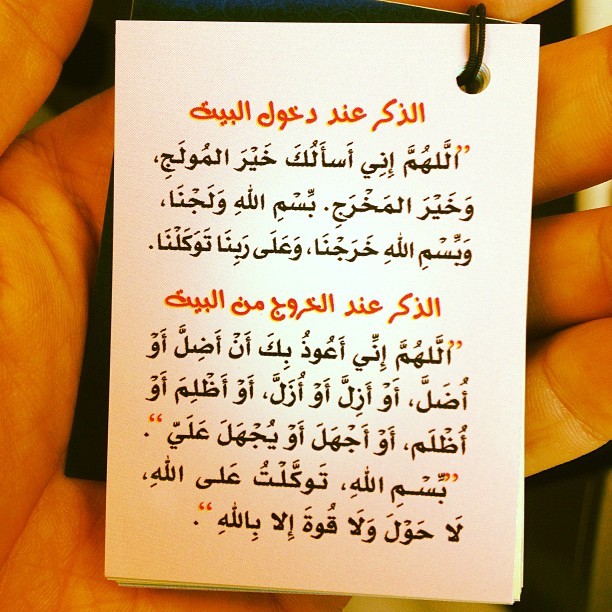 الذكر عند دخول البيت
”الَّلهُمَّ إِنِي أَسأَلُكَ خَيْرَ المُولَجِ،
وَخَيْرَ المَخْرَجِ. بِّسْمِ اللهِ وَلَجْنَا،
وَبِّسْمِ اللهِ خَرَجْنَا، وَعَلَى رَبِنَا تَوَكَلْنَا.
الذكر عند الخروج من البيت
”الَّلهُمَّ إِنِّي أَعُوذُ بِكَ أَنْ أَضِلَّ أَوْ
أُضَلَّ، أَوْ أَزِلَّ أَوْ أُزَلَّ، أَوْ أَظْلِمَ أَوْ
أُظْلَم، أَوْ أَجْهَلَ أَوْ يُجْهَلَ عَلَيّ “.
”بِّسْمِ اللهِ، تَوكَّلْتُ عَلى اللهِ،
لَا حَوْلَ وَلَا قُوةَ إِلا بِاللهِ “.